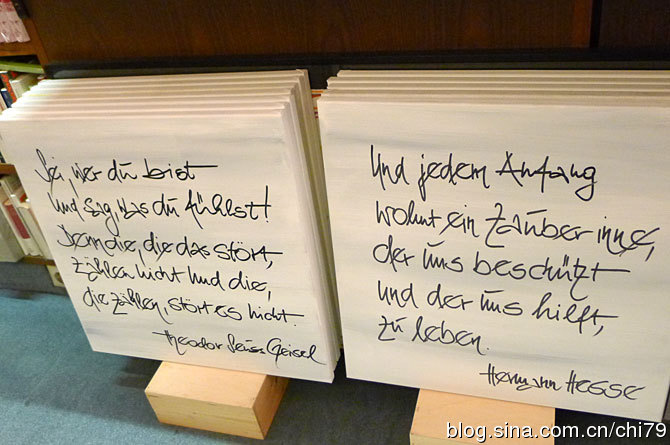 Sei wer du bist
und sag, was du fühlst!
Denn die, die das stört,
zählen nicht und die,
die zählen, stört es nicht.
Theodor Seuss Geisel
Und jedem Anfang
wohnt ein Zauber inne,
der uns beschützt
und der uns hilft,
zu leben.
Hermann Hesse
blog.sina.com.cn/chi79